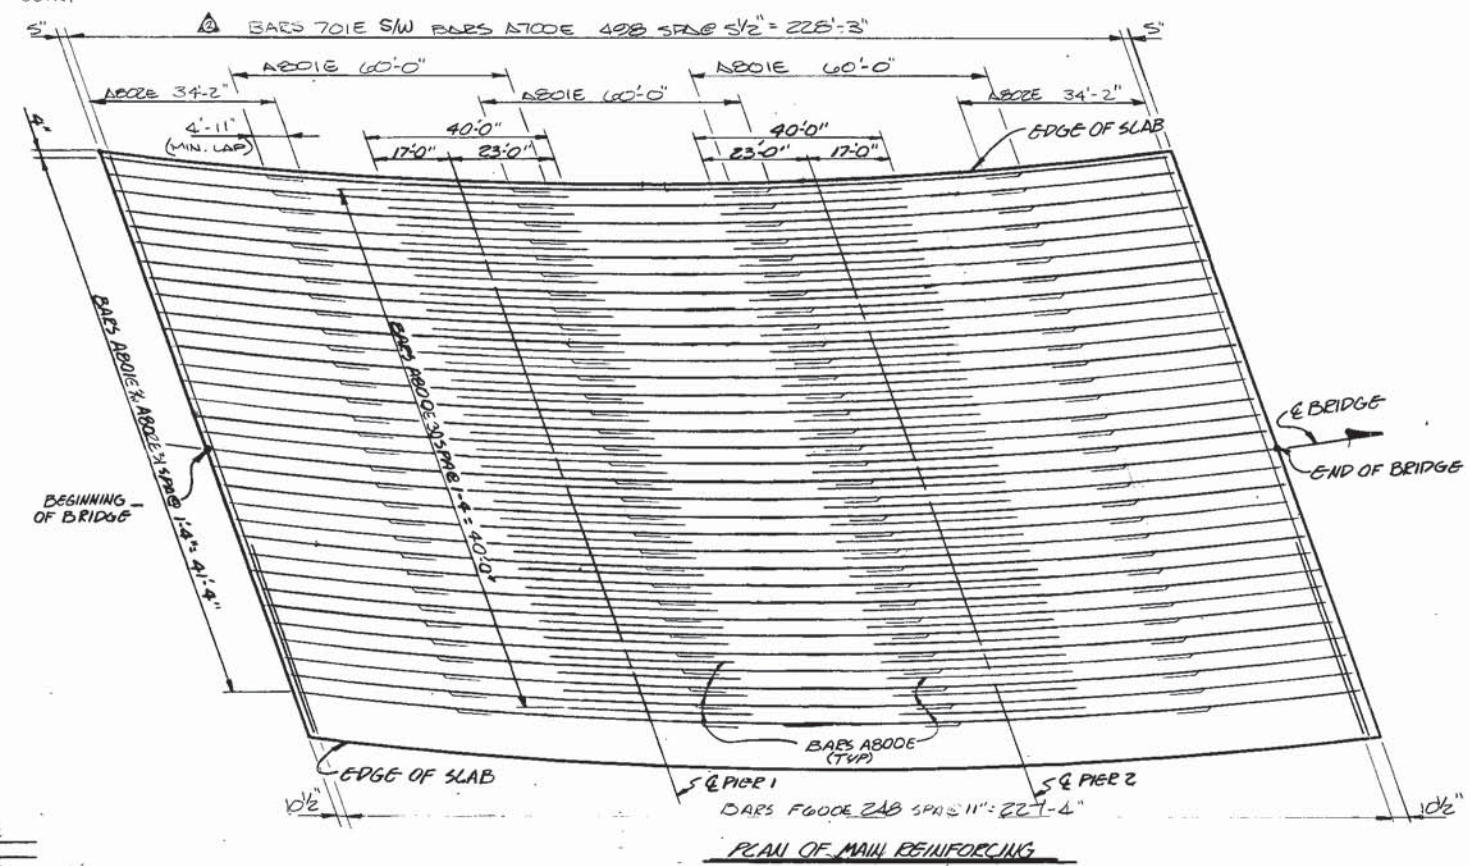 5"
2 BARS 701E S/W BARS A700E 498 SPA@ 5½" = 228'-3"
5"
A801E 60'-0"
A801E 60'-0"
A802E 34'-2"
A801E 60'-0"
A802E 34'-2"
4"
4'-11"
(MIN. LAP)
40'-0"
40'-0"
EDGE OF SLAB
17'-0"
23'-0"
23'-0"
17'-0"
BARS A801E & A802E 31 SPA@ 1'-4" = 41'-4"
BARS A800E 30 SPA@ 1'-4" = 40'-0"
℄ BRIDGE
END OF BRIDGE
BEGINNING
OF BRIDGE
BARS A800E
(TYP)
EDGE OF SLAB
℄ PIER 1
℄ PIER 2
10½"
BARS F600E 248 SPA@ 11" = 227'-4"
10½"
PLAN OF MAIN REINFORCING